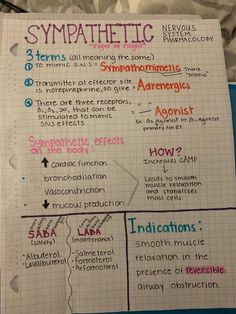 SYMPATHETIC
NERVOUS
SYSTEM
PHARMACOLOGY
"Fight or Flight"
3 terms (all meaning the same)
① To mimic S.N.S = Sympathomimetic
Think
"mimic"
② Transmitter at effector site
is norepinephrine, so give = Adrenergics
③ There are three receptors,
that can be
stimulated to mimic
SNS effects
= Agonist
Ex: Agonist or Agonist
primary for
Sympathetic effects
on the body:
↑ cardiac function
bronchodilation
vasoconstriction
↓ mucous production
HOW?
Increases CAMP
Leads to smooth
muscle relaxation
and stabilizes
mast cells
SABA
(safety)
• Albuterol
• Levalbuterol
LABA
(maintenance)
• Salmeterol
• Formoterol
• Arformoterol
Indications:
Smooth muscle
relaxation in the
presence of reversible
airway obstruction.